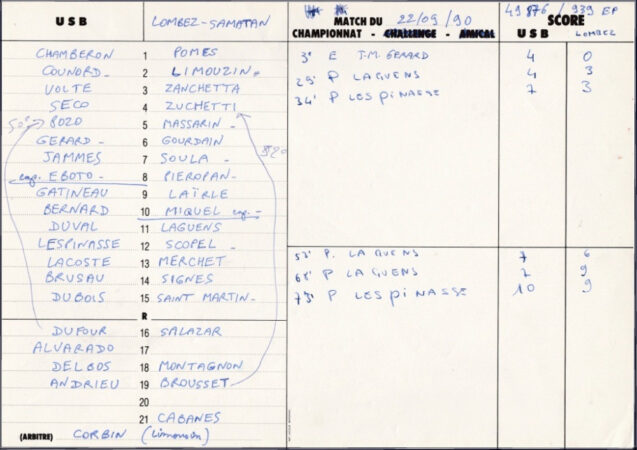 U S B LOMBEZ-SAMATAN
CHAMBERON 1 POMES
COUNORD 2 LIMOUZIN
VOLTE 3 ZANCHETTA
SECO 4 ZUCHETTI
50' BOZO 5 MASSARIN -
GERARD - 6 GOURDAIN
JAMMES 7 SOULA -
cap. EBOTO 8 PIEROPAN -
GATINEAU 9 LAÏRLE
BERNARD 10 MIQUEL cap. -
DUVAL 11 LAGUENS
LESPINASSE 12 SCOPEL -
LACOSTE 13 MERCHET
BRUSAU 14 SIGNES
DUBOIS 15 SAINT MARTIN -
R
DUFOUR 16 SALAZAR
ALVARADO 17
DELBOS 18 MONTAGNON
ANDRIEU 19 BROUSSET
20
21 CABANES
(ARBITRE) CORBIN (Limousin)
MATCH DU 22/09/90
CHAMPIONNAT - CHALLENGE - AMICAL
49 876 / 939 EP
SCORE
U S B LOMBEZ
3' E J.M. GERARD 4 0
29' P LAGUENS 4 3
34' P LESPINASSE 7 3
53' P. LAGUENS 7 6
68' P LAGUENS 7 9
73' P LESPINASSE 10 9